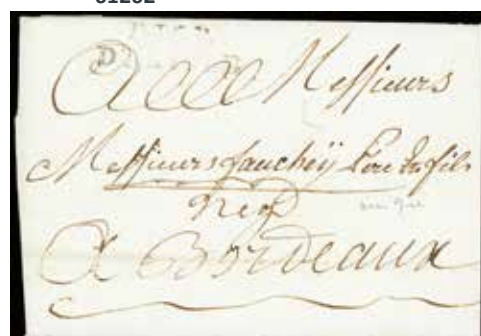 A Messieurs
Messieurs faucheÿ Pere & fils
Neg
A Bordeaux